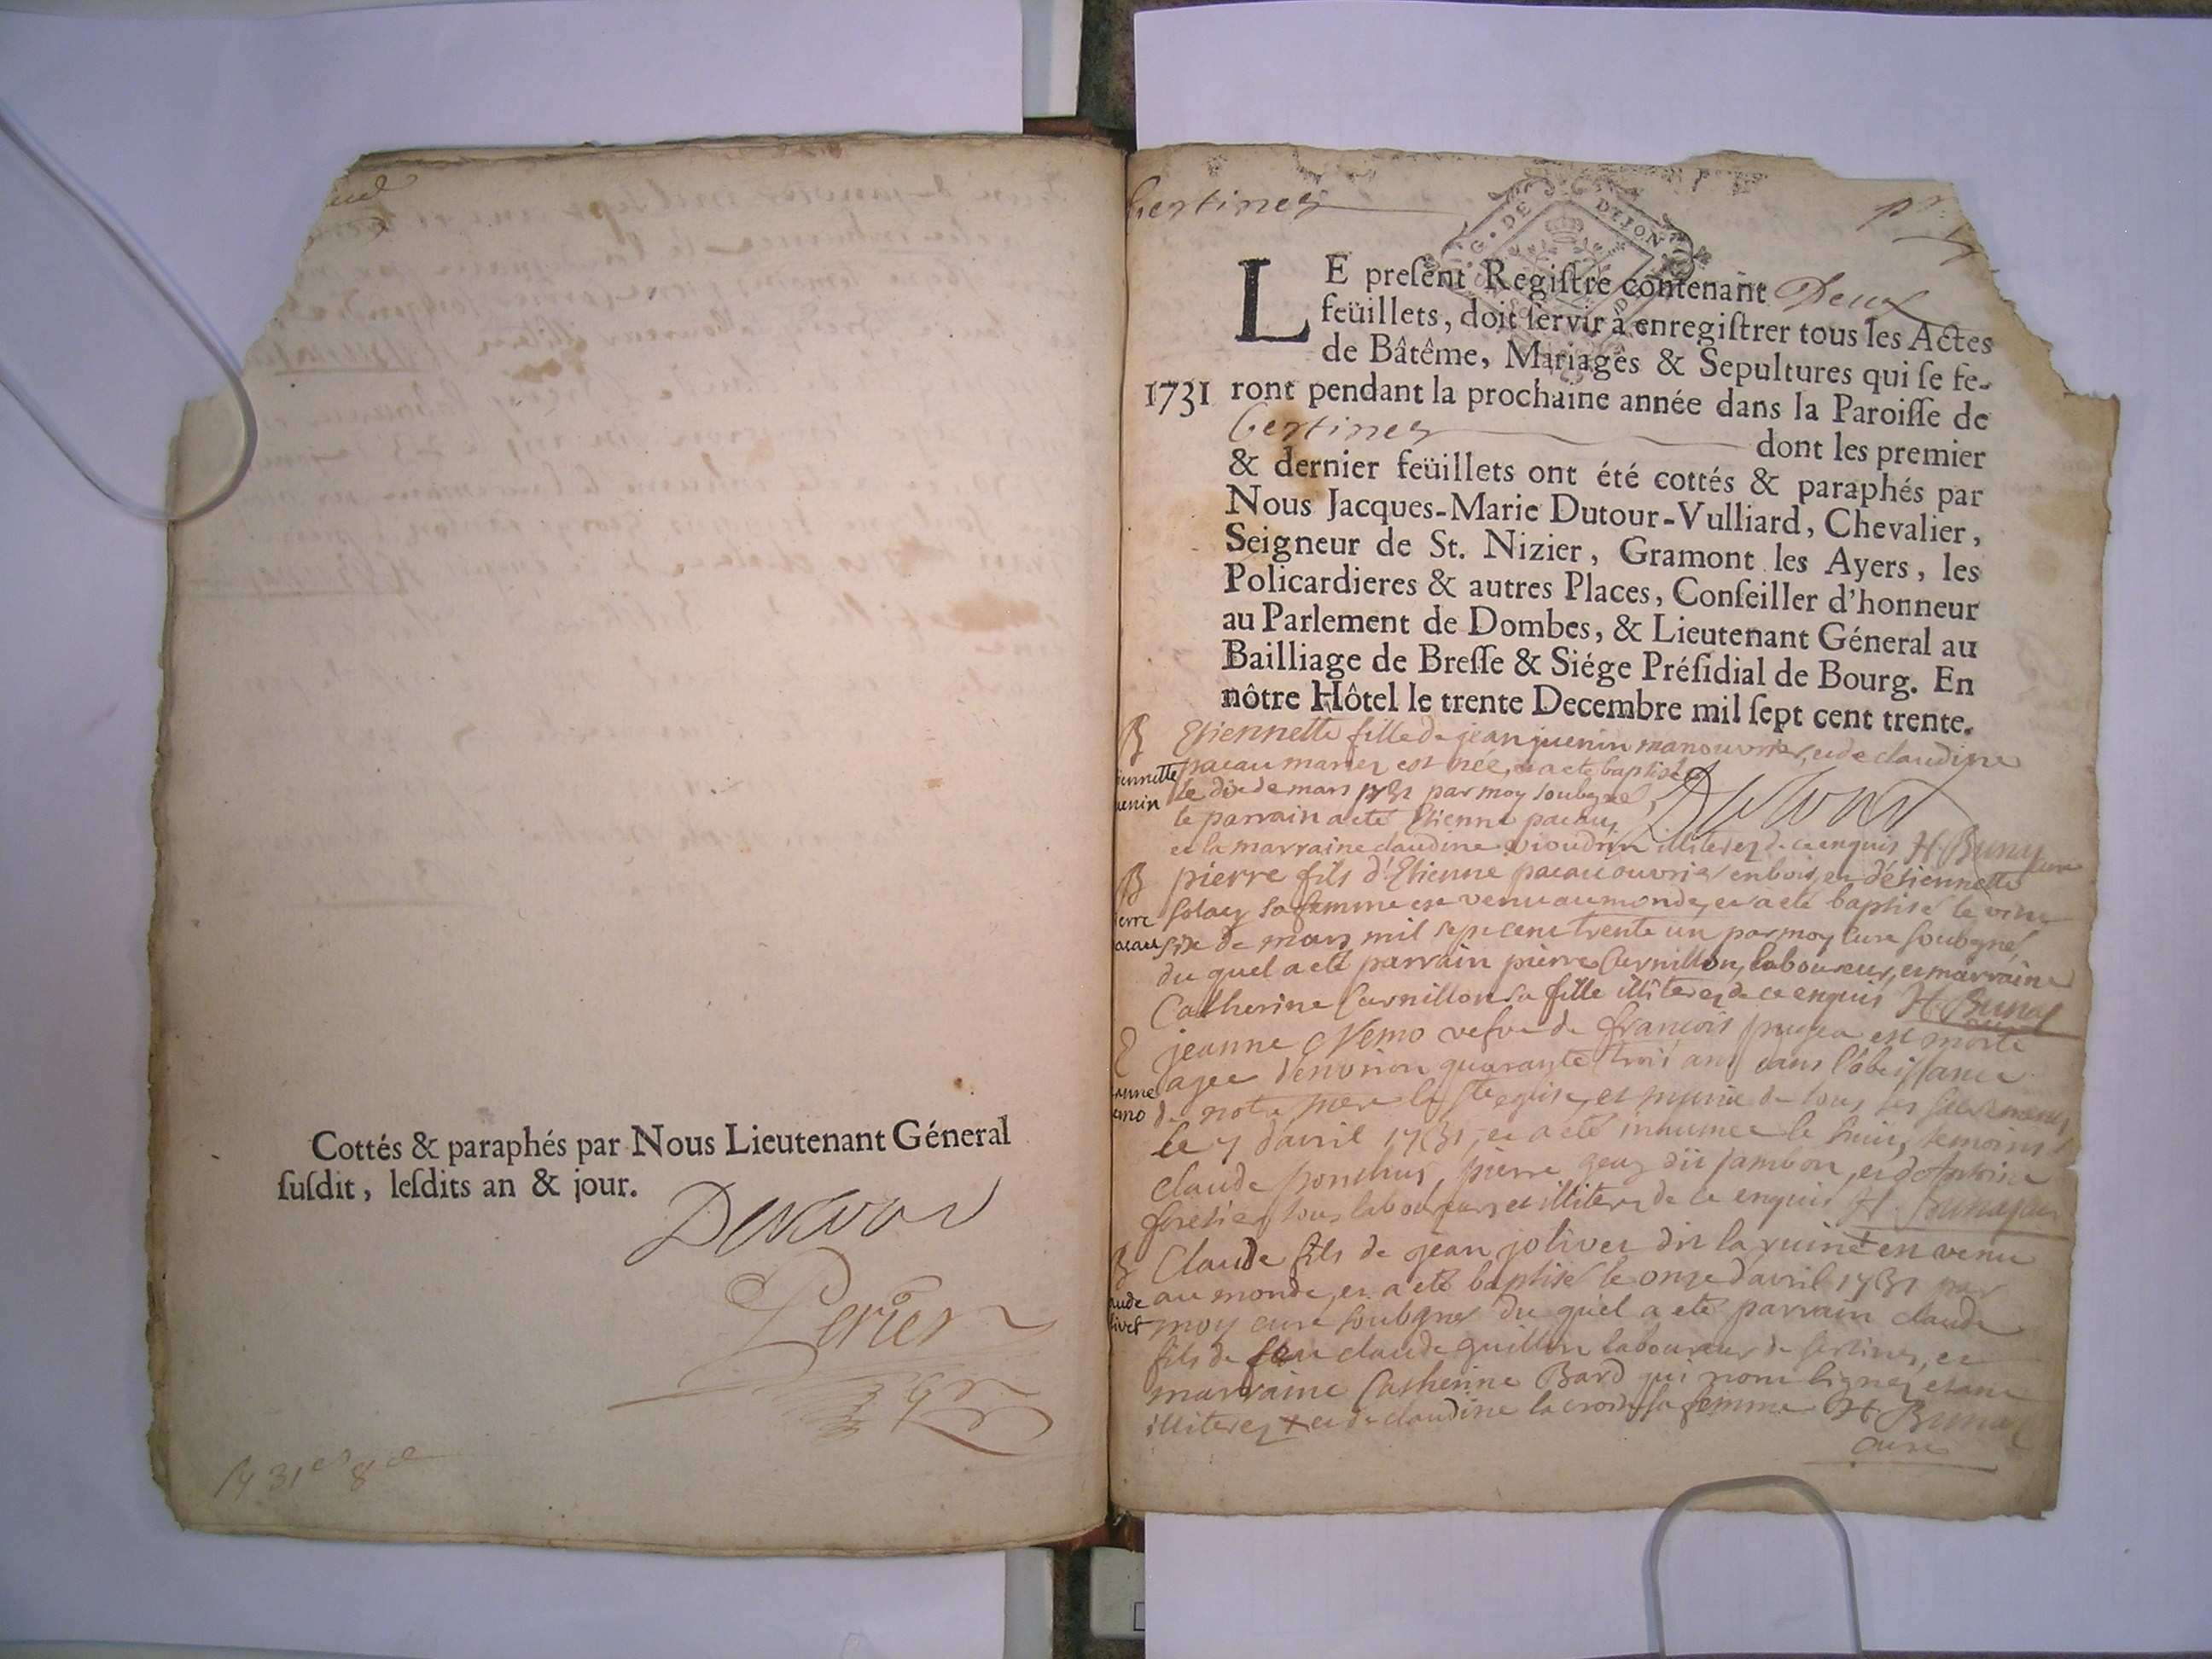 Cottés & paraphés par Nous Lieutenant Géneral
ſuſdit, leſdits an & jour.
Perier
Certines
G. DE DIJON
LE preſent Regiſtre contenant Deux
feüillets, doit ſervir à enregiſtrer tous les Actes
de Bâtême, Mariages & Sepultures qui ſe fe-
1731 ront pendant la prochaine année dans la Paroiſſe de
Certines dont les premier
& dernier feüillets ont été cottés & paraphés par
Nous Jacques-Marie Dutour-Vulliard, Chevalier,
Seigneur de St. Nizier, Gramont les Ayers, les
Policardieres & autres Places, Conſeiller d'honneur
au Parlement de Dombes, & Lieutenant Géneral au
Bailliage de Breſſe & Siége Préſidial de Bourg. En
nôtre Hôtel le trente Decembre mil ſept cent trente.
B Etiennette fille de jean juenin manouvrier, et de claudine
pacau mariez est née, et a eté baptisée
le dix de mars 1731 par moy soubsigné,
le parrain a eté Etienne pacau,
et la marraine claudine illiterez de ce enquis H. Bunay
B pierre fils d'Etienne pacau ouvrier en bois, et d'étiennette
sa femme est venu au monde, et a eté baptisé le vint
six de mars mil sept cent trente un par moy curé soubsigné,
du quel a eté parrain pierre Curnillon, laboureur, et marraine
Catherine Curnillon sa fille illiterez de ce enquis H. Bunay
jeanne Nemo vefve de françois est morte
agée d'environ quarante trois ans dans l'obeissance
de notre mere la ste eglise, et munie de tous ses sacremens
le 7 d'avril 1731, et a eté inhumée le huit, temoins
claude ponthus, pierre dit jambon, et Antoine
foretier tous laboureurs et illiterez de ce enquis H. Bunay curé
B Claude fils de jean jolivet dit la ruine + est venu
au monde, et a eté baptisé le onze d'avril 1731 par
moy curé soubsigné du quel a eté parrain claude
fils de feu claude guillin laboureur de sertines, et
marraine Catherine Bard qui n'ont signez etant
illiterez + et de claudine la croix sa femme H. Bunay
curé